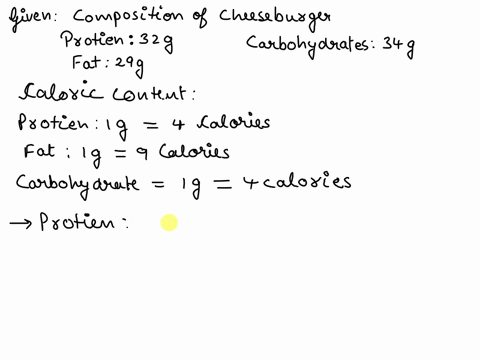 Given: Composition of Cheeseburger
Protien: 32g Carbohydrates: 34g
Fat: 29g
Caloric content:
Protien: 1g = 4 Calories
Fat: 1g = 9 Calories
Carbohydrate = 1g = 4 calories
→ Protien: